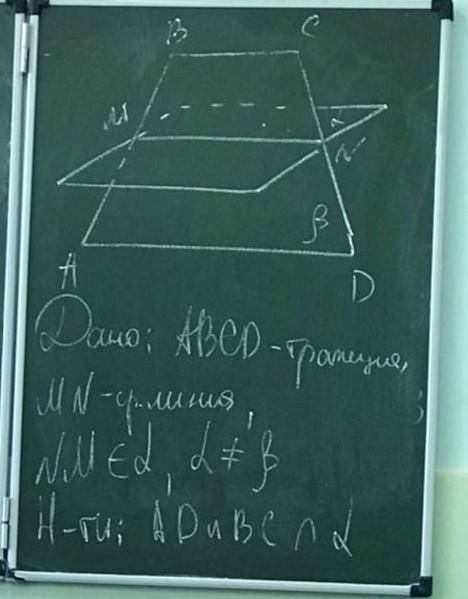 B C
M α
N
β
A D
Дано: ABCD-трапеция,
MN-ср.линия,
NM ∈ α, α ≠ β
Н-ти: AD и BC ∩ α